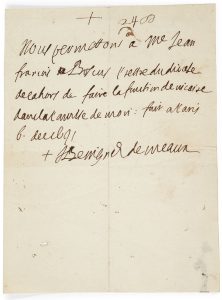 +
Nous permettons à Me Jean
francois prestre du diocese
de cahors de faire la fonction de vicaire
dans la de : fait a Paris
6. dec 1691
+ J Benigne E. de meaux